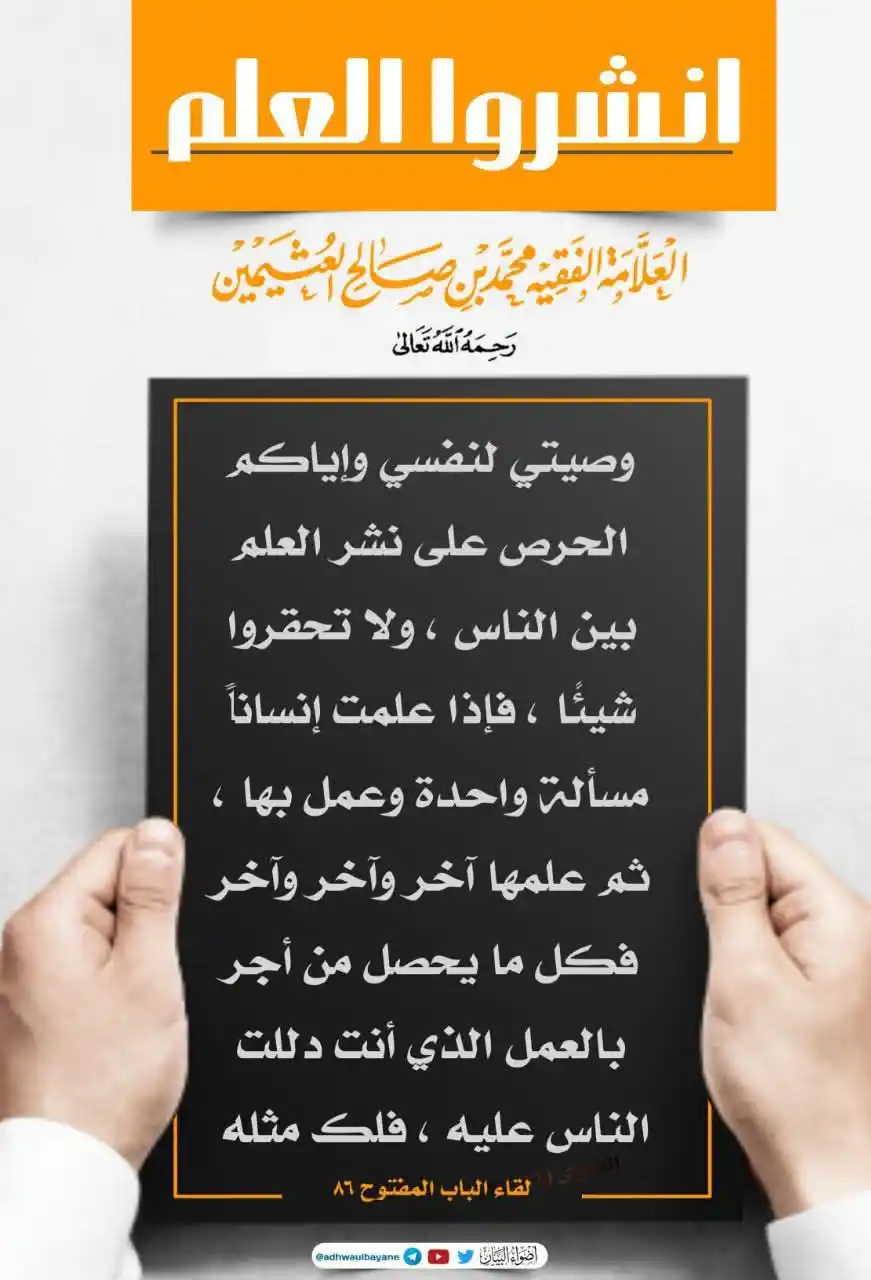 انشروا العلم
العَلَّامَة الفَقِيه محمَّد بْن صَالِح العُثَيمِين
رَحِمَهُ اللَّهُ تَعَالَى
وصيتي لنفسي وإياكم
الحرص على نشر العلم
بين الناس ، ولا تحقروا
شيئًا ، فإذا علمت إنساناً
مسألة واحدة وعمل بها ،
ثم علمها آخر وآخر وآخر
فكل ما يحصل من أجر
بالعمل الذي أنت دللت
الناس عليه ، فلك مثله
لقاء الباب المفتوح ٨٦
أضواء البيان @adhwaulbayane